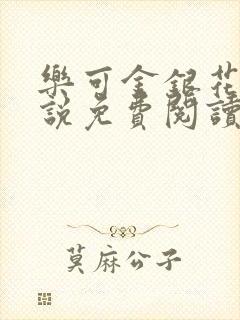 樂可金銀花
說免費閱讀
莫麻公子